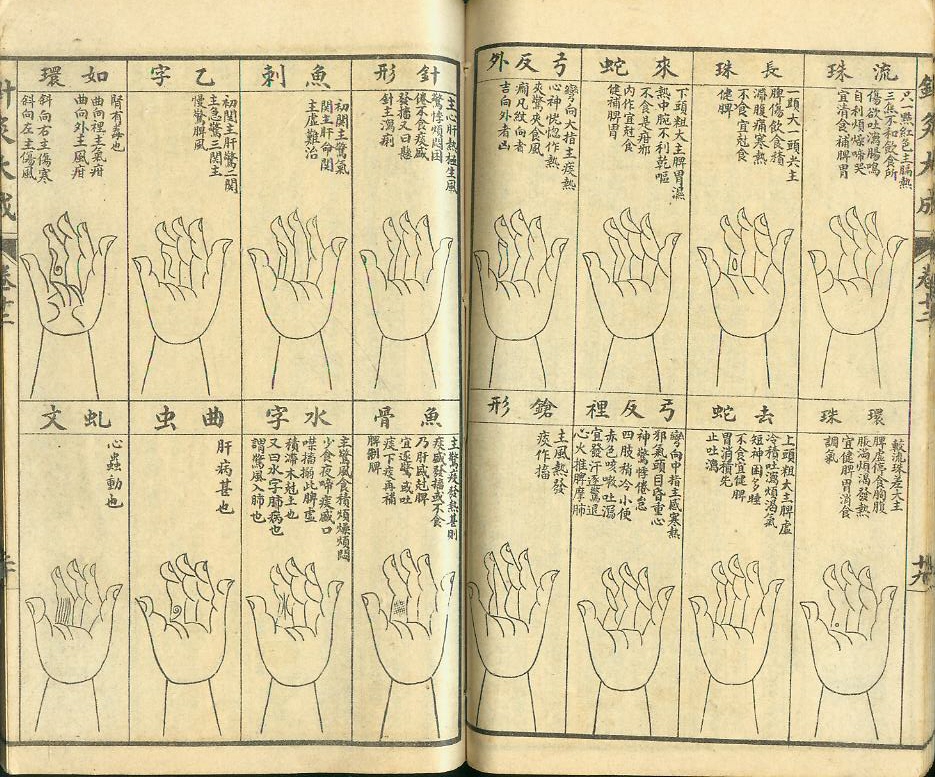 流珠
只一點紅色主膈熱
三焦不和飲食所
傷欲吐瀉腸鳴
自利煩燥啼哭
宜消食補脾胃
長珠
一頭大一頭尖主
脾傷飲食積
滯腹痛寒熱
不食宜尅食
健脾
來蛇
下頭粗大主脾胃濕
熱中脘不利乾嘔
不食是疳邪
內作宜尅食
健補脾胃
弓反外
彎向大指主痰熱
心神恍惚作熱
夾驚夾食風
癇凡紋向內者
吉向外者凶
環珠
較流珠差大主
脾虛停食胸腹
脹滿煩渴發熱
宜健脾胃消食
調氣
去蛇
上頭粗大主脾虛
冷積吐瀉煩渴氣
短神困多睡
不食宜健脾
胃消積先
止吐瀉
弓反裡
彎向中指主感寒熱
邪氣頭目昏重心
神驚悸倦怠
四肢稍冷小便
赤色咳嗽吐逆
宜發汗逐驚退
心火推脾摩肺
鎗形
主風熱發
痰作搐
針形
主心肝熱極生風
驚悸煩悶困
倦不食痰盛
發搐又曰懸
針主瀉痢
魚刺
初關主驚氣
關主肝命關
主虛難治
乙字
初關主肝驚二關
主急驚三關主
慢驚脾風
如環
腎有毒也
曲向裡主氣疳
曲向外主風疳
斜向右主傷寒
斜向左主傷風
魚骨
主驚痰發熱甚則
痰盛發搐或不食
乃肝盛尅脾
宜逐驚或吐
痰下痰再補
脾制脾
水字
主驚風食積煩燥煩悶
少食夜啼痰盛口
噤搐搦此脾虛
積滯木尅土也
又曰水字肺病也
謂驚風入肺也
曲虫
肝病甚也
虬文
心蟲動也
針灸大成
卷十二